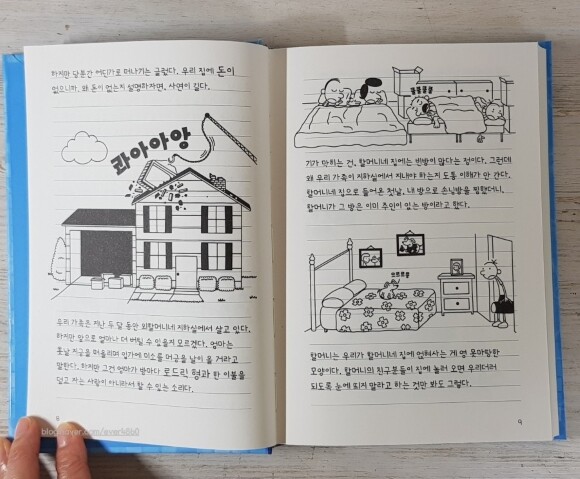 하지만 당분간 어딘가로 떠나기는 글렀다. 우리 집에 돈이
없으니까. 왜 돈이 없는지 설명하자면, 사연이 길다.
콰아아앙
우리 가족은 지난 두 달 동안 외할머니네 지하실에서 살고 있다.
하지만 앞으로 얼마나 더 버틸 수 있을지 모르겠다. 엄마는
훗날 지금을 떠올리며 입가에 미소를 머금을 날이 올 거라고
말한다. 하지만 그건 엄마가 밤마다 로드릭 형과 한 이불을
덮고 자는 사람이 아니라서 할 수 있는 소리다.
8
blog.naver.com/ever4860
쿨쿨쿨쿨
기가 막히는 건, 할머니네 집에는 빈방이 많다는 점이다. 그런데
왜 우리 가족이 지하실에서 지내야 하는지 도통 이해가 안 간다.
할머니네 집으로 들어온 첫날, 내 방으로 손님방을 찜했더니,
할머니가 그 방은 이미 주인이 있는 방이라고 했다.
할머니는 우리가 할머니네 집에 얹혀사는 게 영 못마땅한
모양이다. 할머니의 친구분들이 집에 놀러 오면 우리더러
되도록 눈에 띄지 말라고 하는 것만 봐도 그렇다.
9